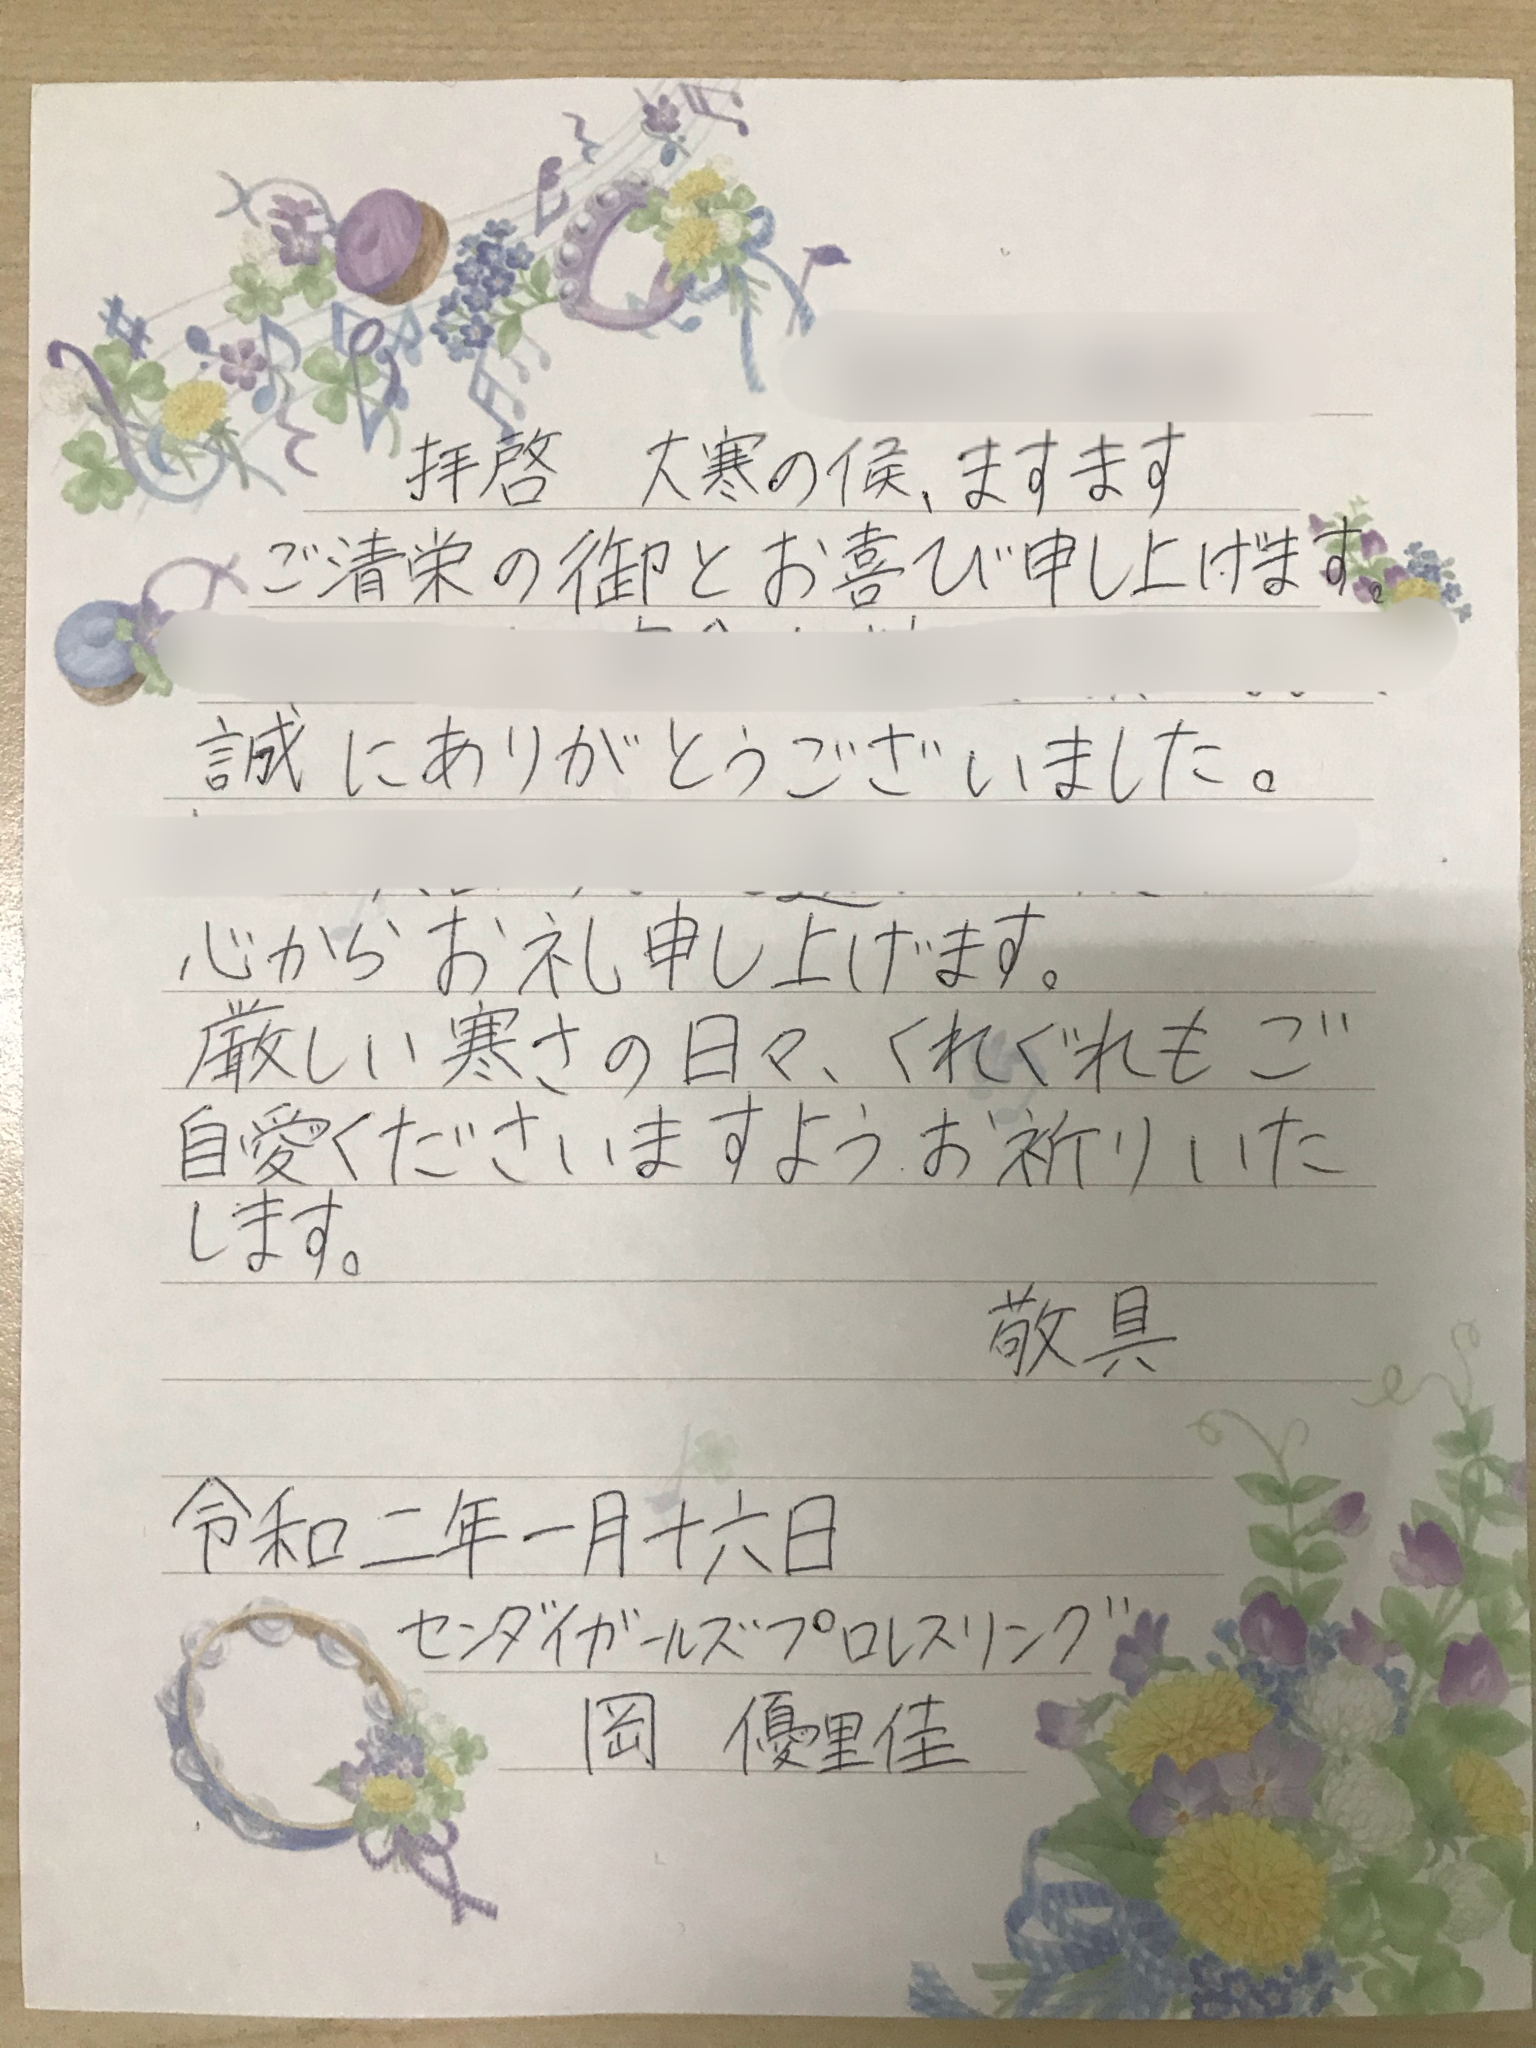 拝啓　大寒の候、ますます
ご清栄の御とお喜び申し上げます。
誠にありがとうございました。
心からお礼申し上げます。
厳しい寒さの日々、くれぐれもご
自愛くださいますようお祈りいた
します。
敬具
令和二年一月十六日
センダイガールズプロレスリング
岡　優里佳